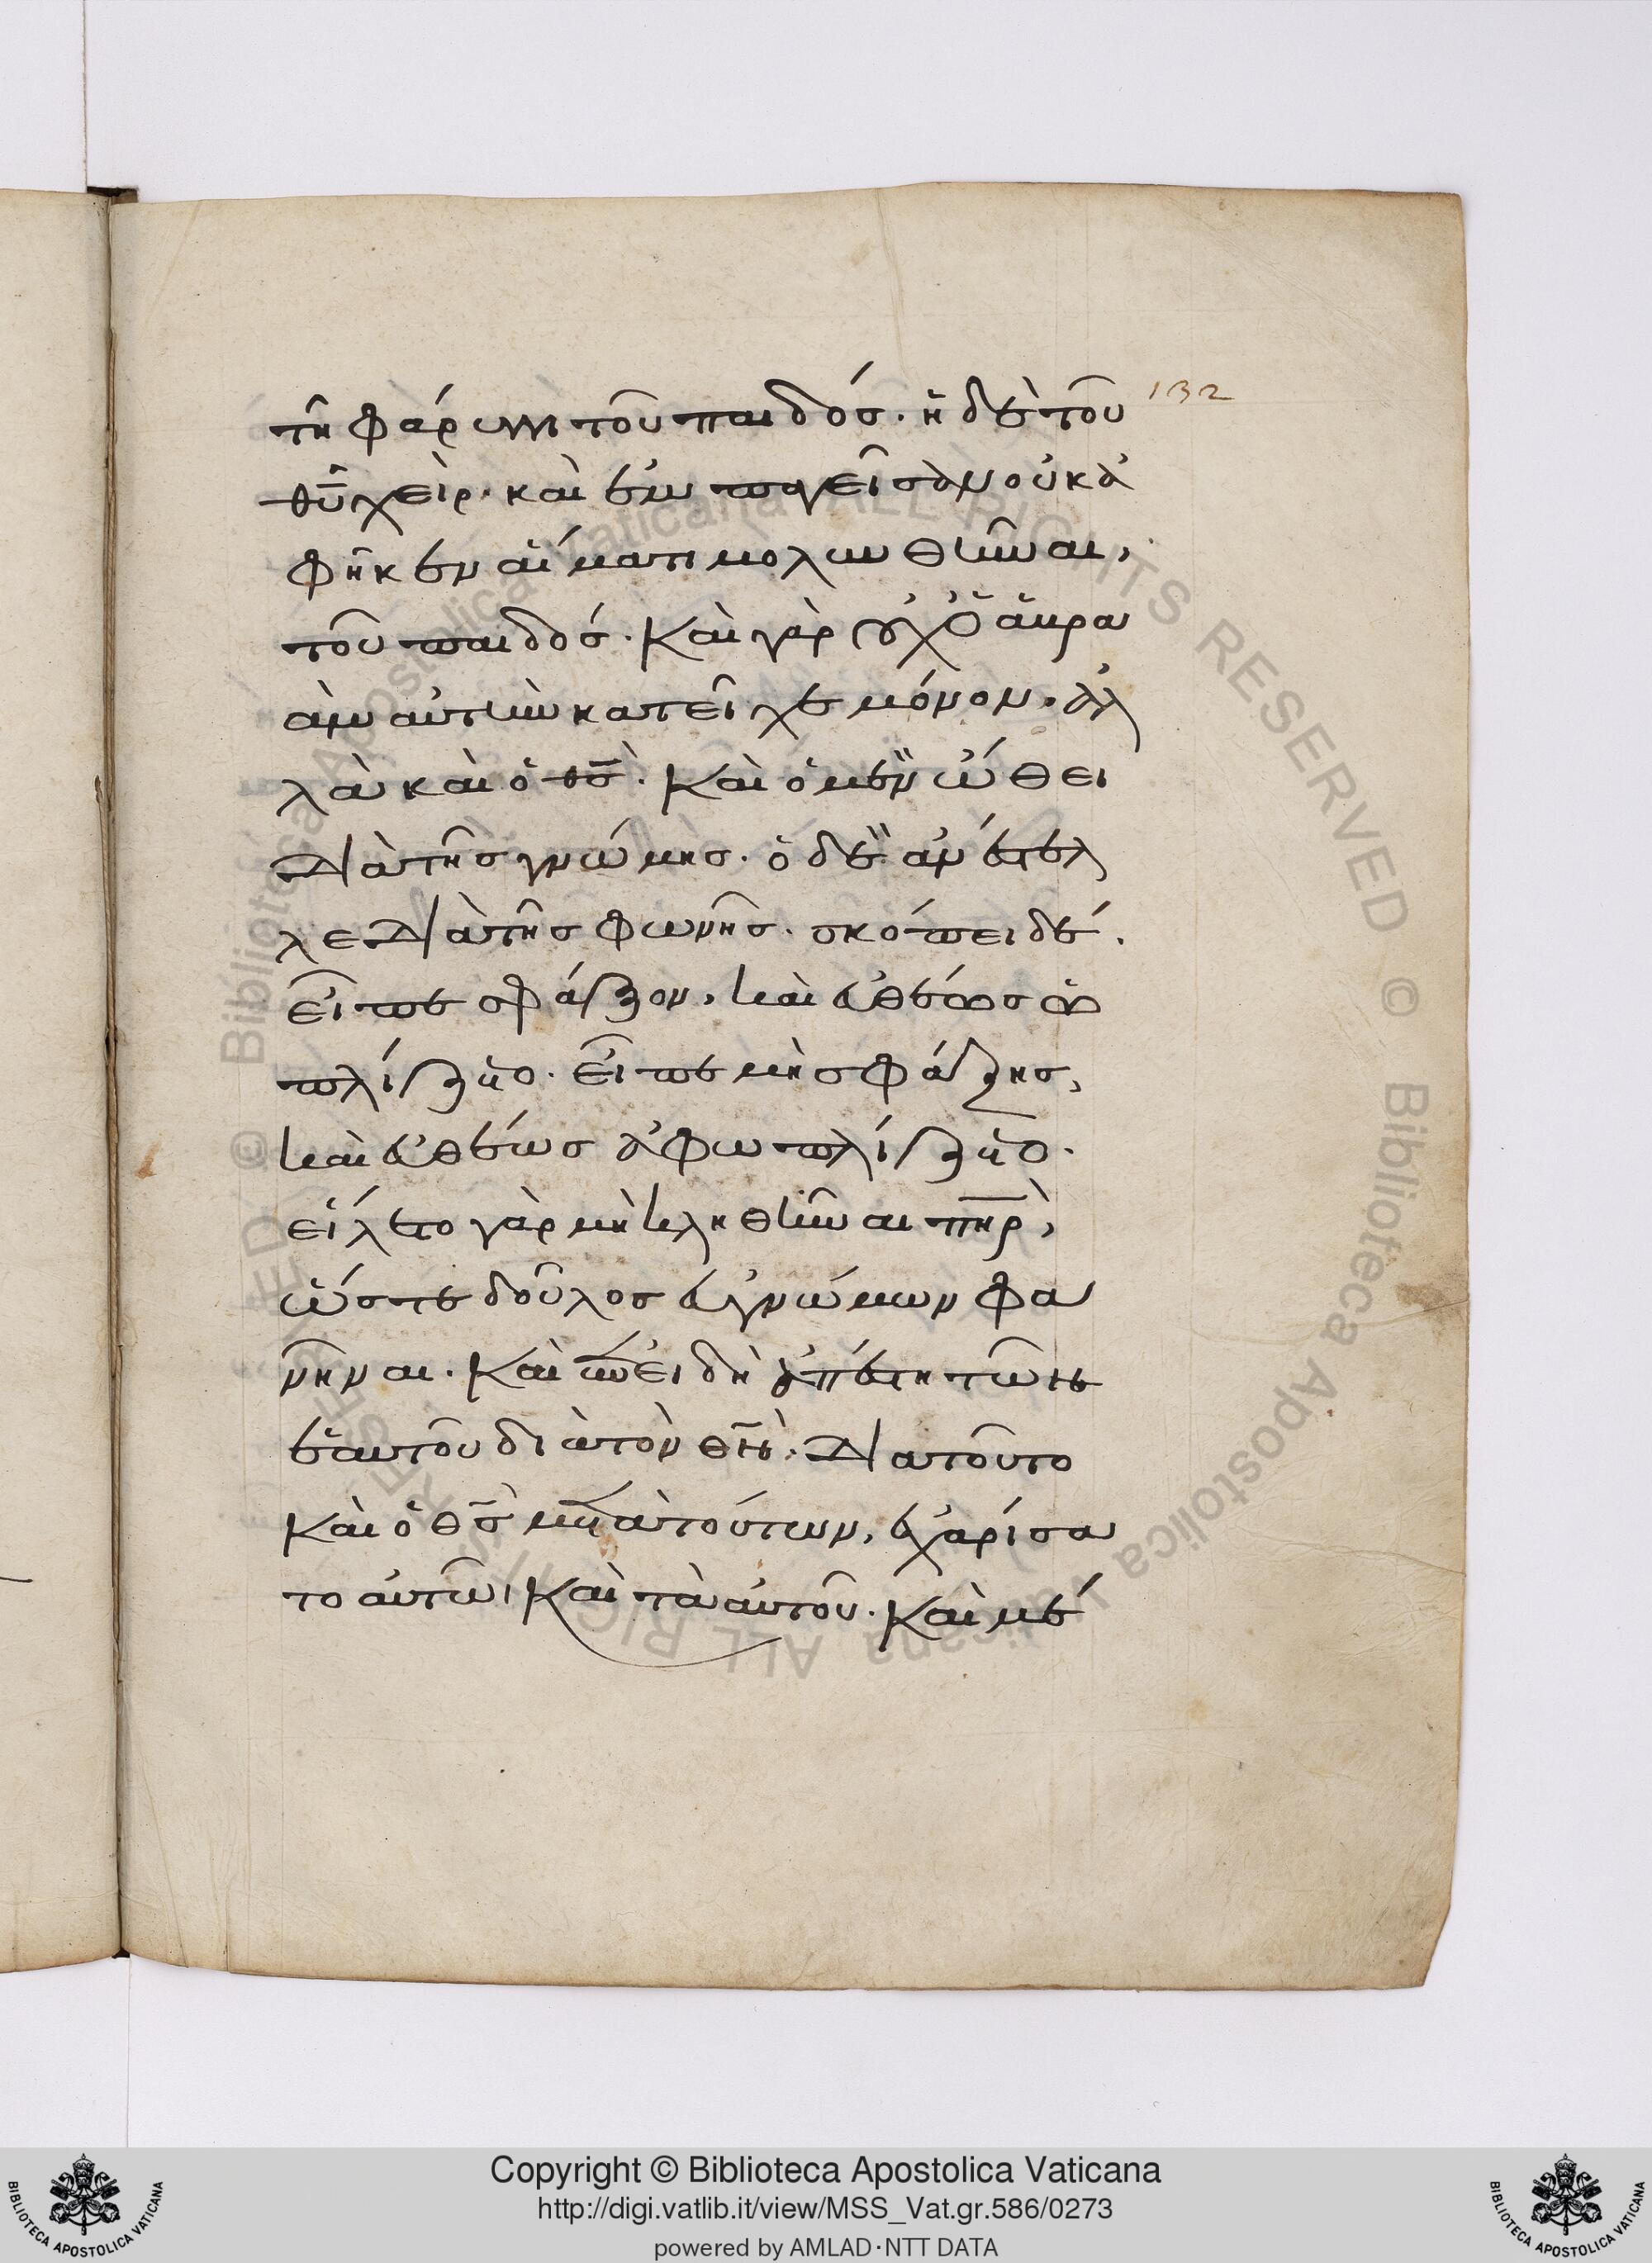 132
τῆ φάρυγγι τοῦ παιδός· ἡ δὲ τοῦ
θῡ χείρ· καὶ ἐμπαγεῖσαν οὐκ ἀ
φῆκεν αἵματι μολυνθῆναι,
τοῦ παιδός. Καὶ γὰρ οὐχὶ Ἀβραὰμ
αὐτὴν κατεῖχε μόνον, ἀλ
λὰ καὶ ὁ θς̄. Καὶ ὁ μὲν ὤθει
διὰ τῆς γνώμης· ὁ δὲ ἀνέστελ
λε διὰ τῆς φωνῆς. σκόπει δέ.
εἶπε σφάξον, καὶ εὐθέως ὡ
πλίζετο. εἶπε μὴ σφάξης,
καὶ εὐθέως ἀφωπλίζετο.
εἵλετο γὰρ μὴ κληθῆναι πηρ̄,
ὥστε δοῦλος εὐγνώμων φα
νῆναι. Καὶ ἐπειδὴ ἀπέστη τῶν
ἑαυτοῦ διὰ τὸν θν̄· διὰ τοῦτο
καὶ ὁ θς̄ μετὰ τούτων, ἐχαρίσα
το αὐτῶ, καὶ τὰ αὐτοῦ. Καὶ μέ
Copyright © Biblioteca Apostolica Vaticana
http://digi.vatlib.it/view/MSS_Vat.gr.586/0273
powered by AMLAD·NTT DATA
BIBLIOTECA APOSTOLICA VATICANA
BIBLIOTECA APOSTOLICA VATICANA